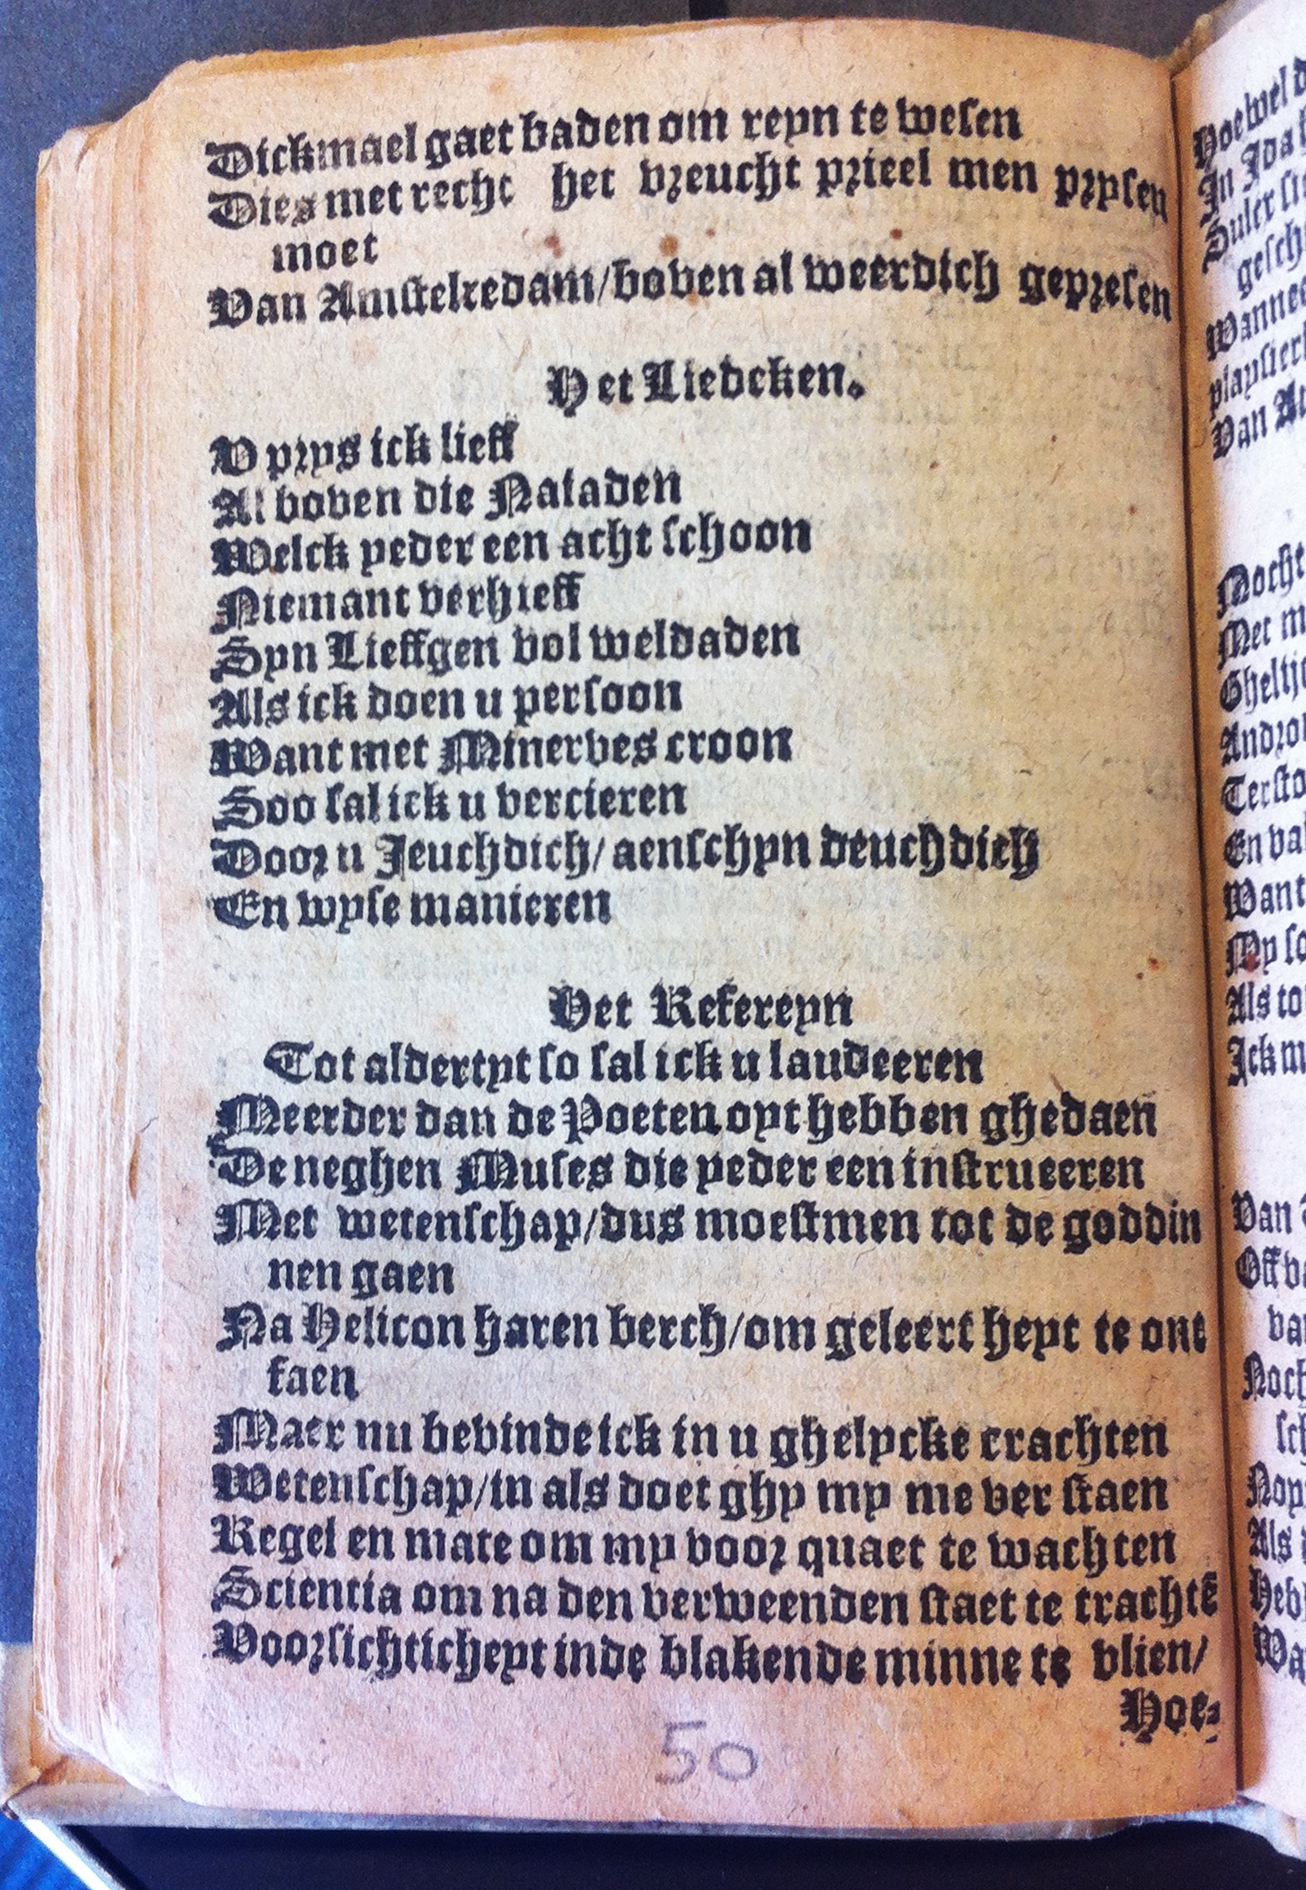 Dickmael gaet baden om reyn te wesen
Dies met recht het vreucht prieel men prysen
moet
Van Amstelredam/boven al weerdich gepresen
Het Liedeken.
V prys ick lieff
Al boven die Naiaden
Welck yeder een acht schoon
Niemant verhieff
Syn Lieffgen vol weldaden
Als ick doen u persoon
Want met Minerves croon
Soo sal ick u vercieren
Door u Jeuchdich/aenschyn deuchdich
En wyse manieren
Het Refereyn
Tot aldertyt so sal ick u laudeeren
Meerder dan de Poeten oyt hebben ghedaen
De neghen Muses die yeder een instrueeren
Met wetenschap/dus moestmen tot de goddin
nen gaen
Na Helicon haren berch/om geleert heyt te ont
faen
Maer nu bevinde ick in u ghelycke crachten
Wetenschap/in als doet ghy my me ver staen
Regel en mate om my voor quaet te wachten
Scientia om na den verweenden staet te trachtē
Voorsichticheyt inde blakende minne te vlien/
Hoe-
50
Hoewel
In Ida
gesch
Van
Met
Want
My
Als
Ick
Van